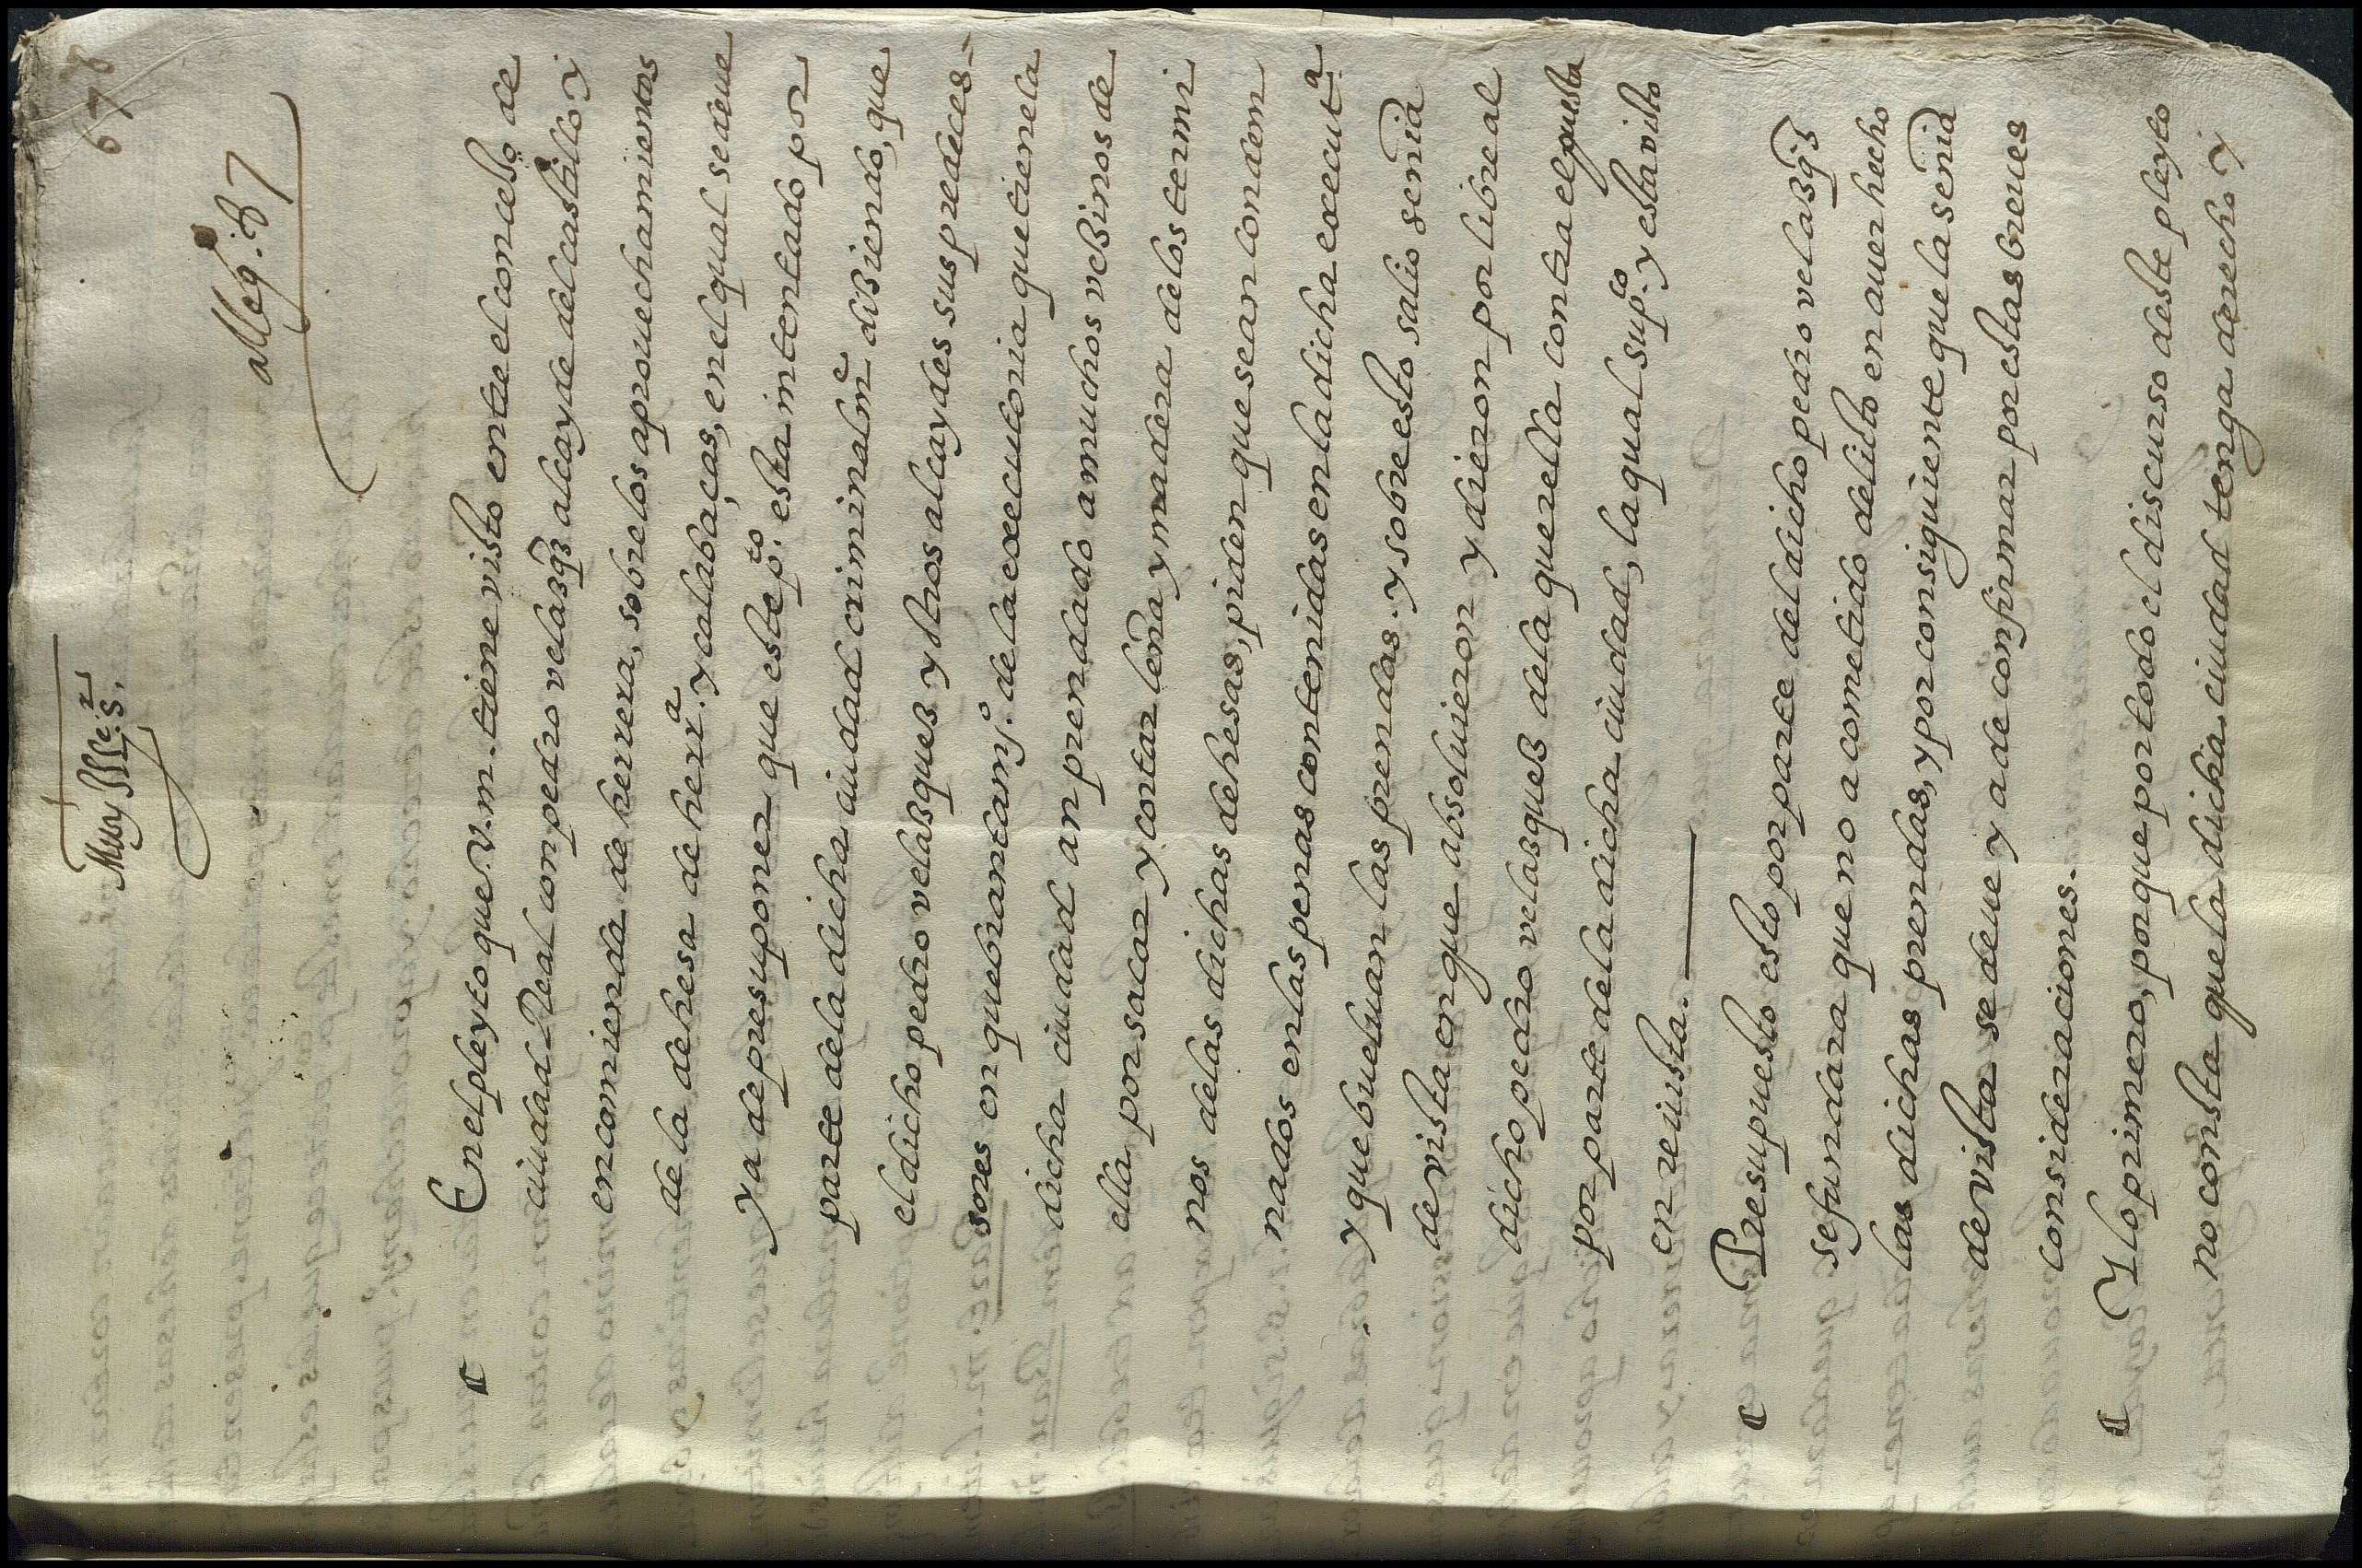 678
Muy Ille. Sr.
Alleg. 87
En el pleyto que V. m. tiene visto entre el concejo de
ciudad Real con pedro velazqz alcayde del castillo y
encomienda de herrera, sobre los aprouechamientos
de la dehesa de herra. y calabaças, en el qual se deue
y a de presuponer que este pto. esta intentado por
parte de la dicha ciudad criminalme diziendo, que
el dicho pedro velazquez y otros alcaydes sus predeces-
sores en quebrantamjo. de la executoria que tiene la
dicha ciudad an prendado a muchos vezinos de
ella por sacar y cortar leña y madera de los termi
nos de las dichas dehesas, piden que sean conden
nados en las penas contenidas en la dicha executa
y que bueluan las prendas. y sobre esto salio senia
de vista en que absoluieron y dieron por libre al
dicho pedro velazquez de la querella contra el puesta
por parte de la dicha ciudad, la qual supco. y esta visto
en reuista.
Presupuesto esto por parte del dicho pedro velazqz
se fundara que no a cometido delito en auer hecho
las dichas prendas, y por consiguiente que la senia
de vista se deue y a de confirmar por estas breues
consideraciones.
Y lo primero, porque por todo el discurso deste pleyto
no consta que la dicha ciudad tenga derecho y